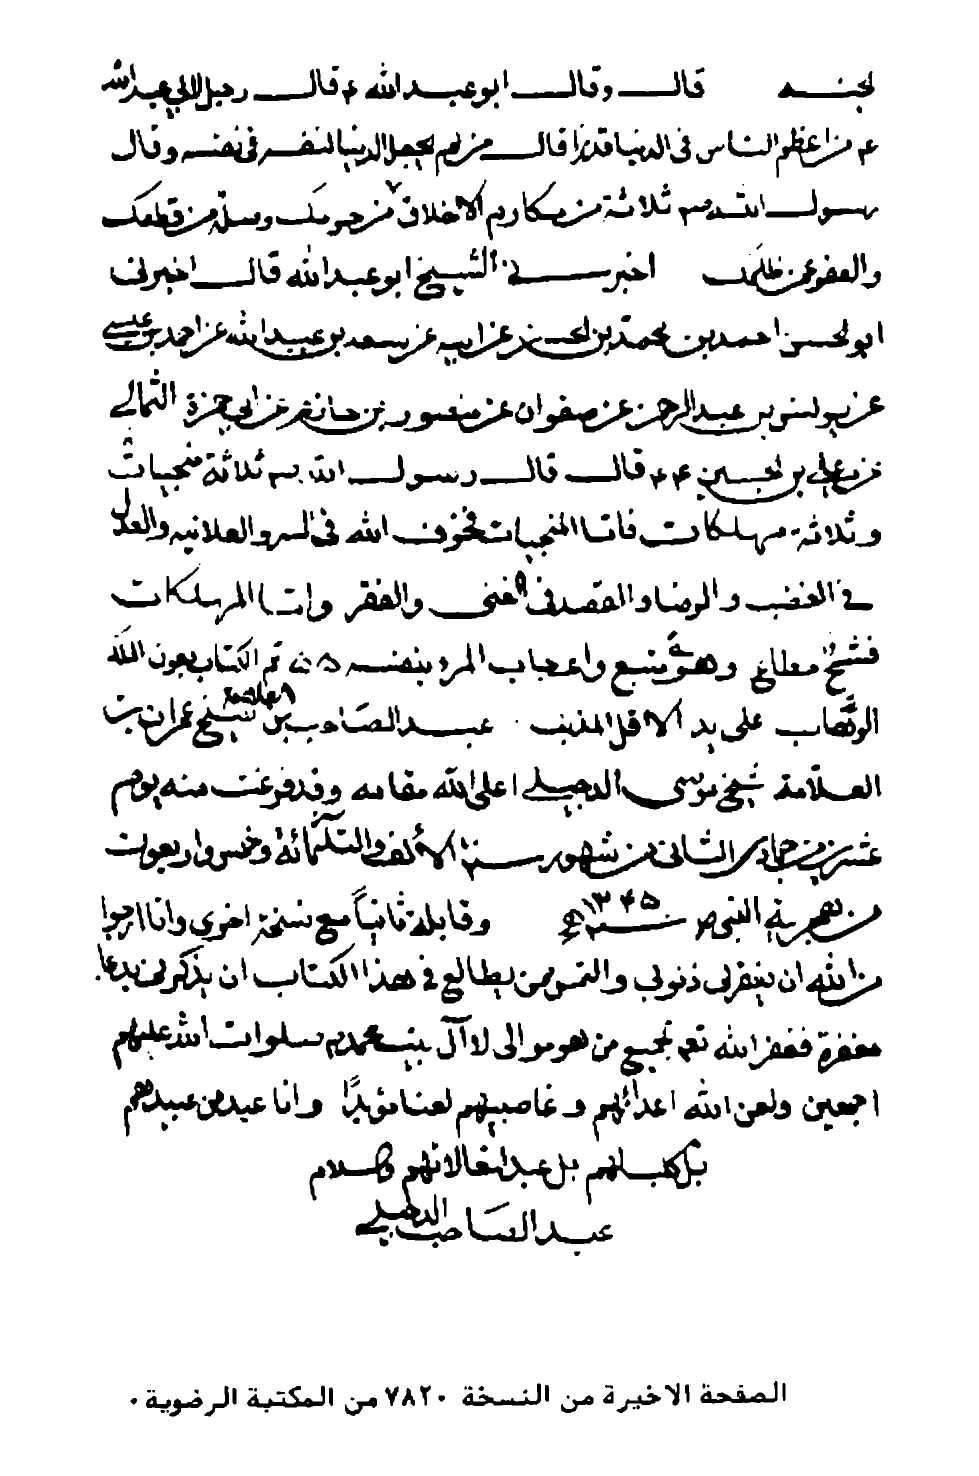 لجنبه قال وقال ابو عبد الله ع قال رجل لابي عبد الله
ع من اعظم الناس في الدنيا قدرا قال من لم يجعل الدنيا لنفسه في نفسه وقال
رسول الله ص ثلاثة من مكارم الاخلاق من حرمك وصلة من قطعك
والعفو عمن ظلمك اخبرني الشيخ ابو عبد الله قال اخبرني
ابو الحسن احمد بن محمد بن الحسن عن ابيه عن سعد بن عبد الله عن احمد بن عيسى
عن يونس بن عبد الرحمن عن صفوان عن منصور بن حازم عن ابي حمزة الثمالي
عن علي بن الحسين ع قال قال رسول الله ص ثلاثة منجيات
وثلاثة مهلكات فامّا المنجيات فخوف الله في السر والعلانيه والعدل
في الغضب والرضا والقصد في الغنى والفقر وامّا المهلكات
فشحّ مطاع وهوى متبع واعجاب المرء بنفسه تم الكتاب بعون الملك
الوهّاب على يد الاقل المذنب عبد الصّاحب بن العلامة شيخ عمران بن
العلّامة شيخ موسى الدجيلي اعلى الله مقامه وقد فرغت منه يوم
عشرين من جمادى الثاني من شهور سنة الألف والثلثمائة وخمس واربعون
من هجرية النبي ص سنة ١٣٤٥ هـ وقابلته ثانياً مع نسخة اخرى وانا ارجوا
من الله ان يغفر لي ذنوبي والتمس ممن يطالع في هذا الكتاب ان يذكرني بدعاء
مغفرة فغفر الله تعم لجميع من هو موالى لآل بيت محمد ص صلوات الله عليهم
اجمعين ولعن الله اعدائهم وغاصبيهم لعنا مؤبدًا وانا عبد من عبيدهم
بل كلبهم بل عبد والسلام
عبد الصاحب الدجيلي
الصفحة الاخيرة من النسخة ٧٨٢٠ من المكتبة الرضوية .